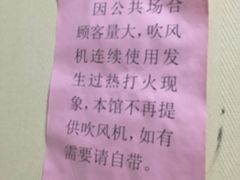 因公共场合
顾客量大，吹风
机连续使用发
生过热打火现
象，本馆不再提
供吹风机，如有
需要请自带。